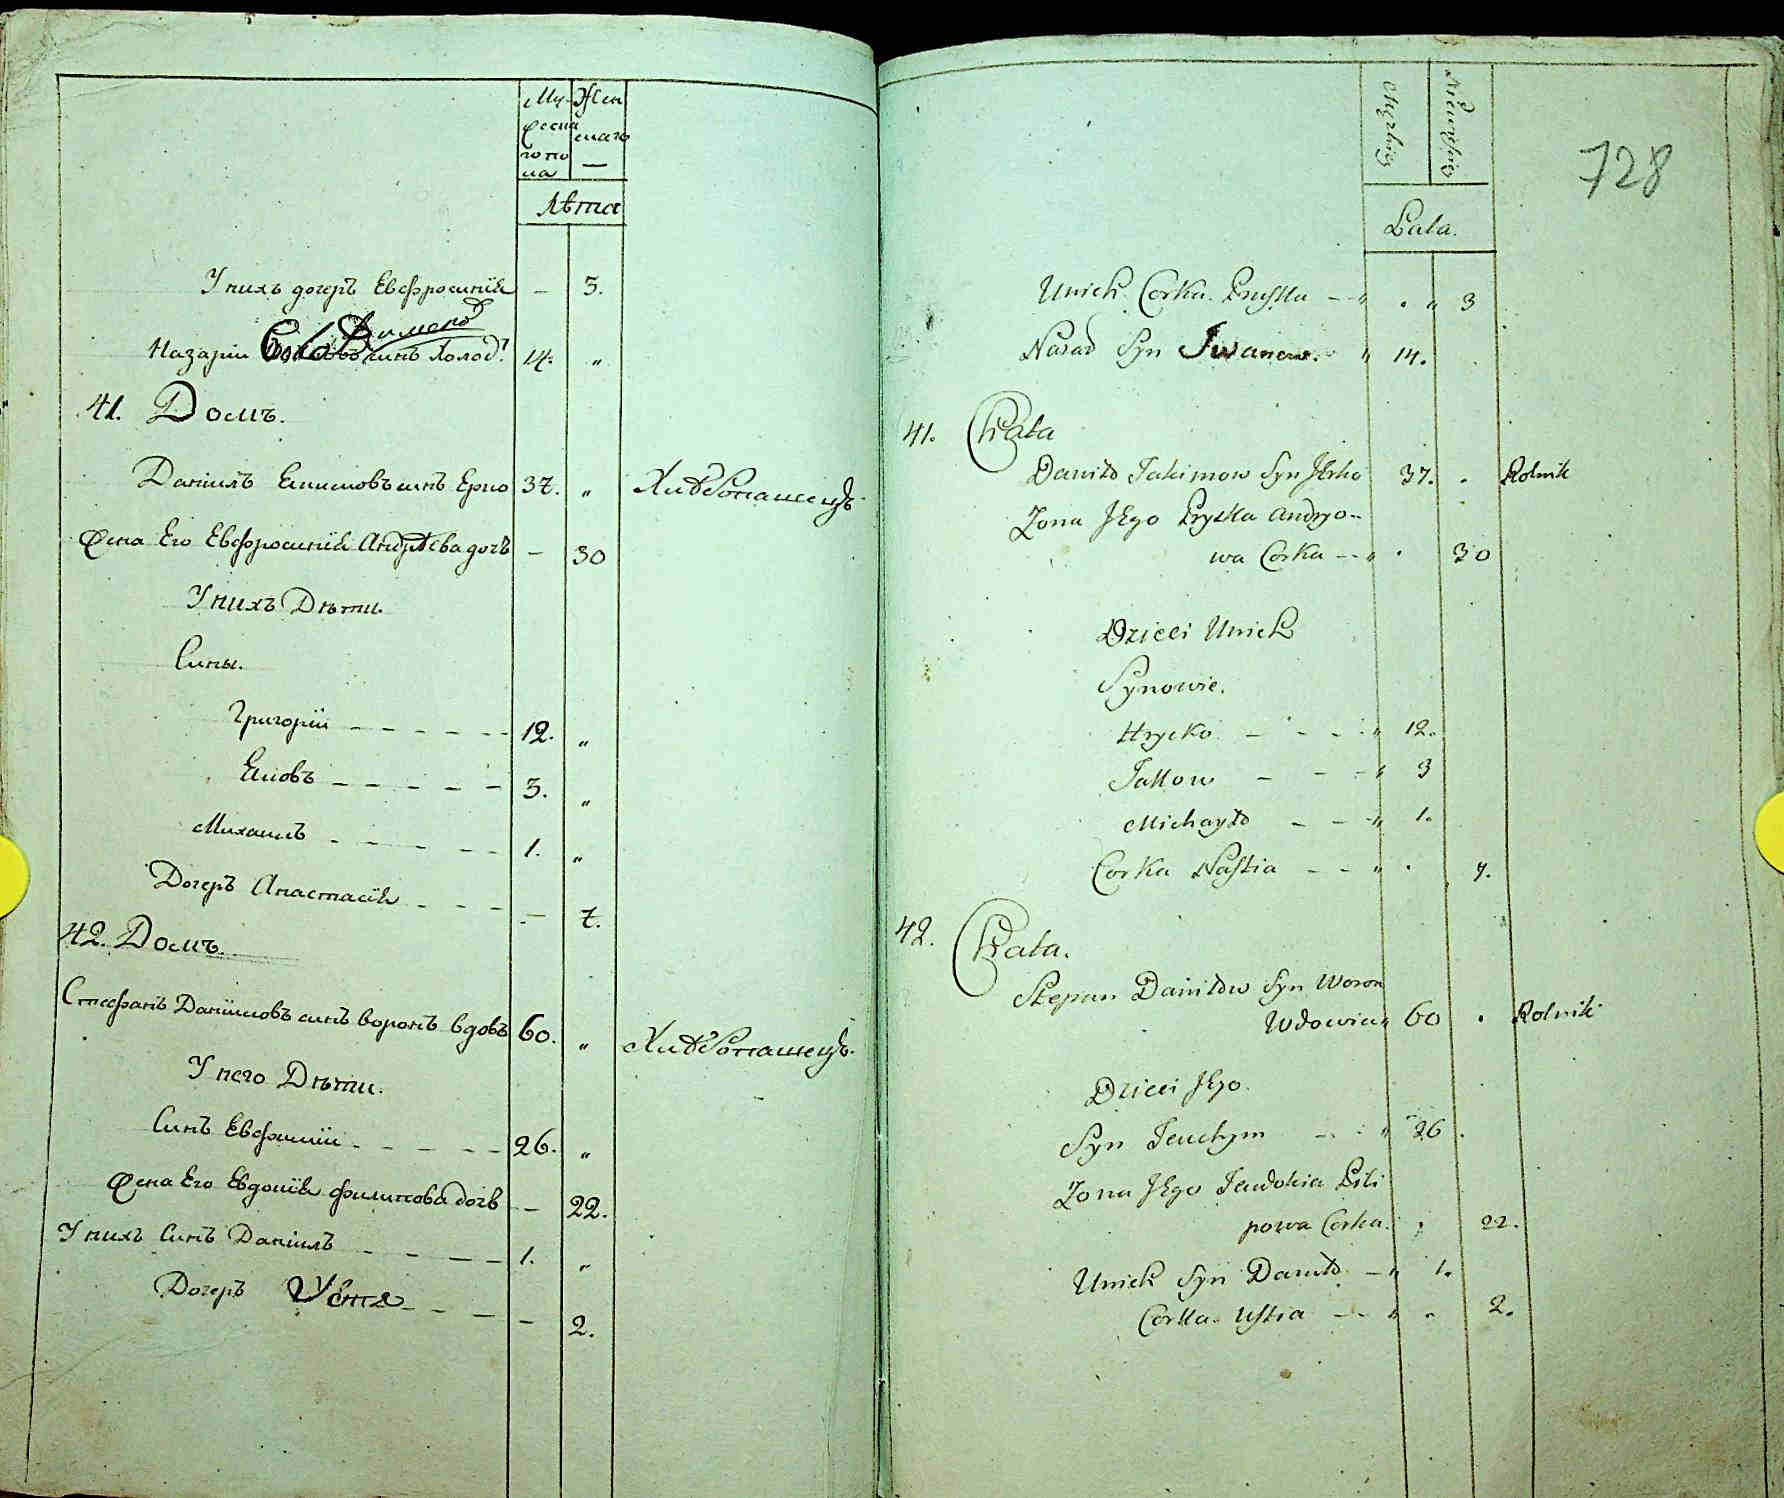 Мужеска го пола
Женскаго —
Лѣта
У нихъ дочеръ Евфросинія — 3.
Назарій синъ Холод: 14. „
41. Домъ.
Даніилъ Екимовъ синъ Ерко 37. „ Хлѣбопашецъ.
Жена Его Евфросинія Андрѣева дочь — 30
У нихъ Дѣти
Сины.
Григорій 12. „
Яковъ 3. „
Михаилъ 1. „
Дочеръ Анастасія — 7.
42. Домъ.
Стефанъ Даніиловъ синъ воронъ вдовъ 60. „ Хлѣбопашецъ.
У него Дѣти.
Синъ Евфимій 26. „
Жена Его Евдокія филипова дочь — 22.
У нихъ Синъ Даніилъ 1. „
Дочеръ Устя — 2.
728
Lata.
Unich Corka Pryska 3
Nasar Syn Iwanow. 14.
41. Chata
Daniło Jakimow Syn Jerko 37. Rolnik
Zona Jego Pryska Andryo-
wa Corka 30
Dzieci Unich
Synowie.
Hrycko 12.
Jakow 3
Michayło 1.
Corka Nastia 7.
42. Chata.
Stepan Daniłow Syn Woron
Wdowiec 60 Rolnik
Dzieci Jego.
Syn Jeuchym 26
Zona Jego Jeudokia Pili
powa Corka. 22.
Unich Syn Daniło 1.
Corka Ustia 2.